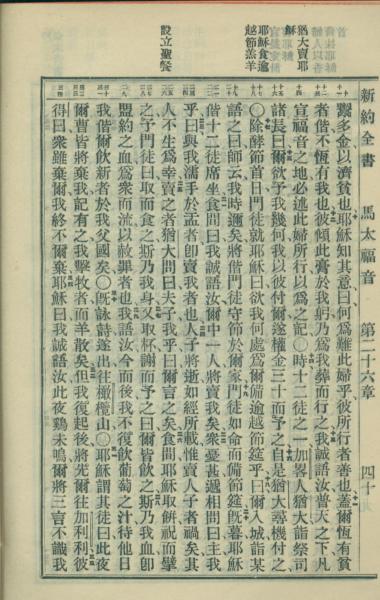 新約全書 馬太福音 第二十六章 四十
鬻多金以濟貧也耶穌知其意曰何爲難此婦乎彼所行者善也蓋爾恆有貧
者偕不恆有我也彼傾此膏於我躬乃爲我葬而行之我誠語汝普天之下凡
宣福音之地必述此婦所行以爲之記〇時十二徒之一加畧人猶大詣祭司
猶大賣耶
穌
諸長曰爾欲予我幾何我以彼付爾遂權金三十而予之自是猶大尋機付之
耶穌食逾
越節羔羊
〇除酵節首日門徒就耶穌曰欲我何處爲爾備逾越節筵乎曰爾入城詣某
語之曰師云我時邇矣將偕門徒守節於爾家門徒如命而備節筵旣暮耶穌
偕十二徒席坐食間曰我誠語汝爾中一人將賣我矣衆憂甚遞相問曰主我
乎曰與我濡手於盂者卽賣我者也人子將逝如經所載惟賣人子者禍矣其
人不生爲幸賣之者猶大問曰夫子我乎曰爾言之矣食間耶穌取餅祝而擘
設立聖餐
之予門徒曰取而食之斯乃我身又取杯謝而予之曰爾皆飲之斯乃我血卽
盟約之血爲衆而流以赦罪者也我語汝今而後我不復飲葡萄之汁待他日
我偕爾飲新者於我父國矣〇旣詠詩遂出往橄欖山〇耶穌謂其徒曰此夜
爾曹皆將棄我記有之我擊牧者而羊散矣但我復起後將先爾往加利利彼
得曰衆雖棄爾我終不爾棄耶穌曰我誠語汝此夜鷄未鳴爾將三言不識我